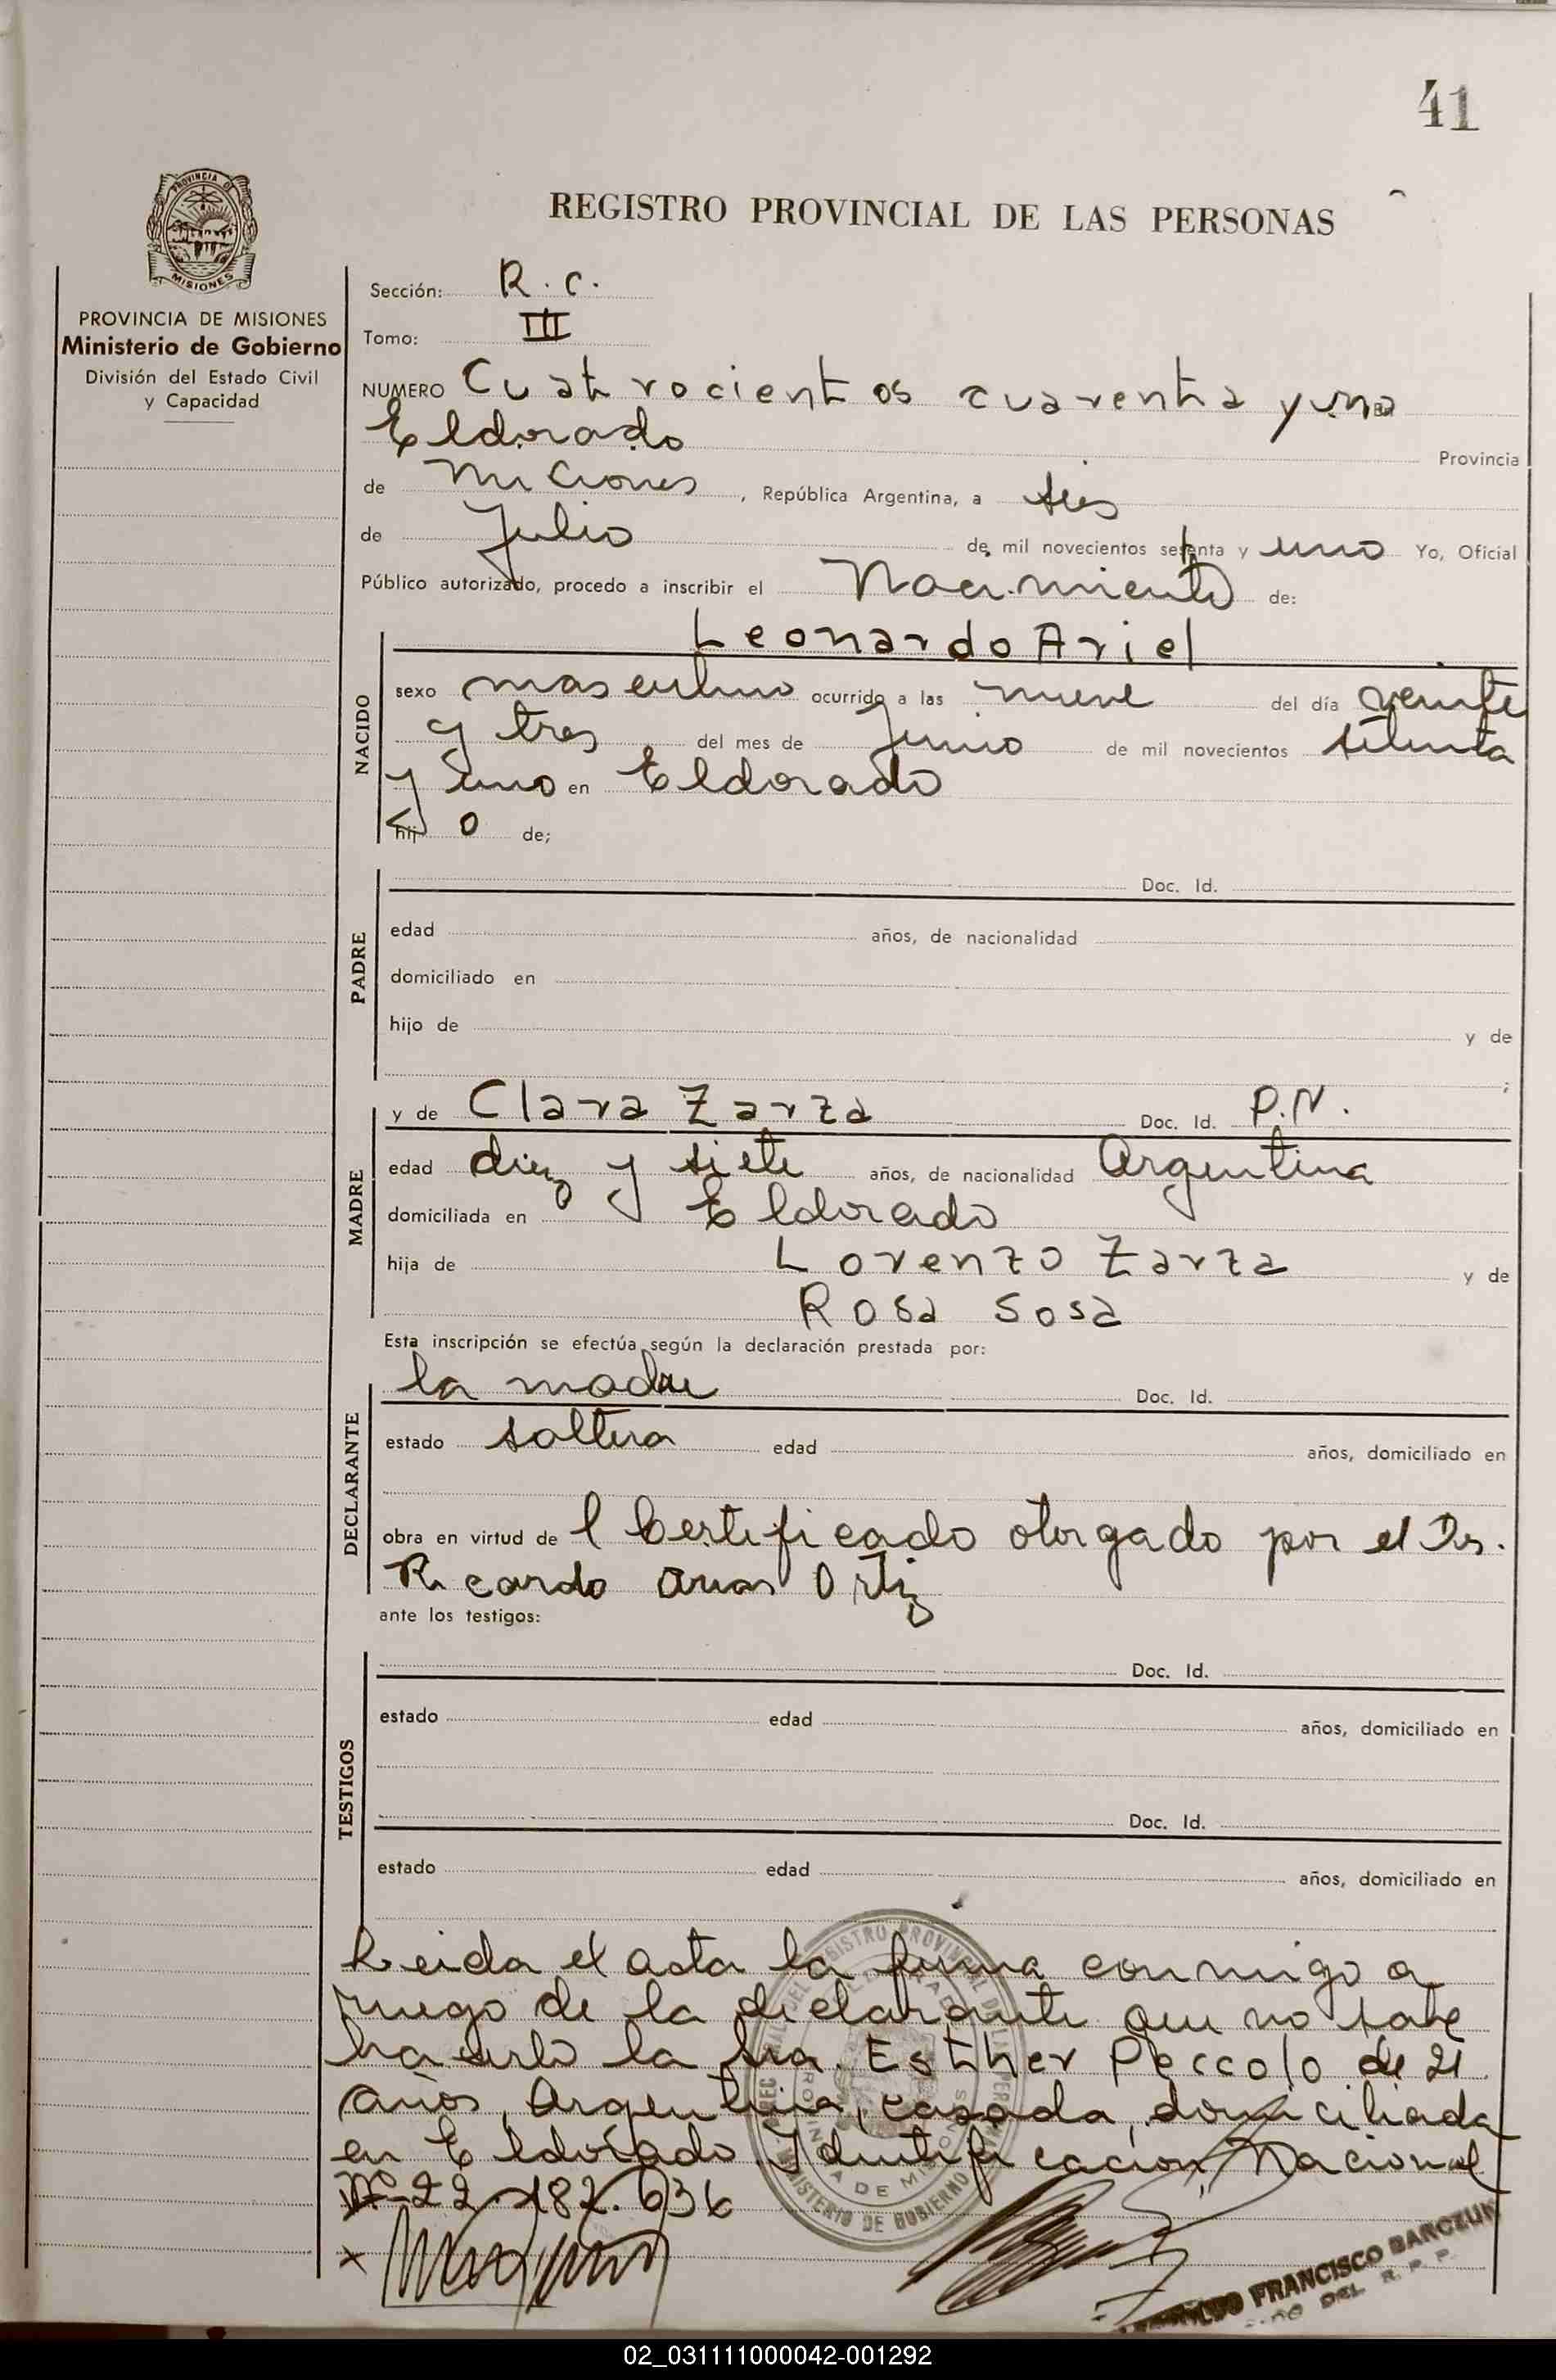 41
PROVINCIA DE
MISIONES
REGISTRO PROVINCIAL DE LAS PERSONAS
PROVINCIA DE MISIONES
Ministerio de Gobierno
División del Estado Civil
y Capacidad
Sección: R. C.
Tomo: III
NUMERO Cuatrocientos cuarenta y uno
Eldorado Provincia
de Miciones, República Argentina, a seis
de Julio de mil novecientos setenta y uno Yo, Oficial
Público autorizado, procedo a inscribir el Nacimiento de:
Leonardo Ariel
NACIDO
sexo masculino ocurrido a las nueve del día veinte
y tres del mes de Junio de mil novecientos setenta
y uno en Eldorado
hij o de;
PADRE
Doc. Id.
edad años, de nacionalidad
domiciliado en
hijo de y de
;
MADRE
y de Clara Zarza Doc. Id. P.N.
edad diez y siete años, de nacionalidad Argentina
domiciliada en Eldorado
hija de Lorenzo Zarza y de
Rosa Sosa
Esta inscripción se efectúa según la declaración prestada por:
DECLARANTE
la madre Doc. Id.
estado soltera edad años, domiciliado en
obra en virtud de l Certificado otorgado por el Dr.
Ricardo Arias Ortiz
ante los testigos:
TESTIGOS
Doc. Id.
estado edad años, domiciliado en
Doc. Id.
estado edad años, domiciliado en
Leida el acta la firma conmigo a
ruego de la declarante que no sabe
hacerlo la Sra. Esther Peccolo de 21
años, Argentina, casada, domiciliada
en Eldorado. Identificación Nacional
Nº 22.187.636
x
FRANCISCO BARCZUK
DEL R. P. P.
MINISTERIO DE GOBIERNO
02_031111000042-001292